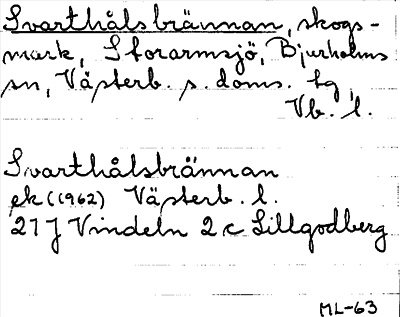 Svarthålsbrännan, skogs-
mark, Storarmsjö, Bjurholms
sn, Västerb. s. doms. tg,
Vb. l.
Svarthålsbrännan
ek (1962) Västerb. l.
21 J Vindeln 2 c Lillgodberg
ML-63